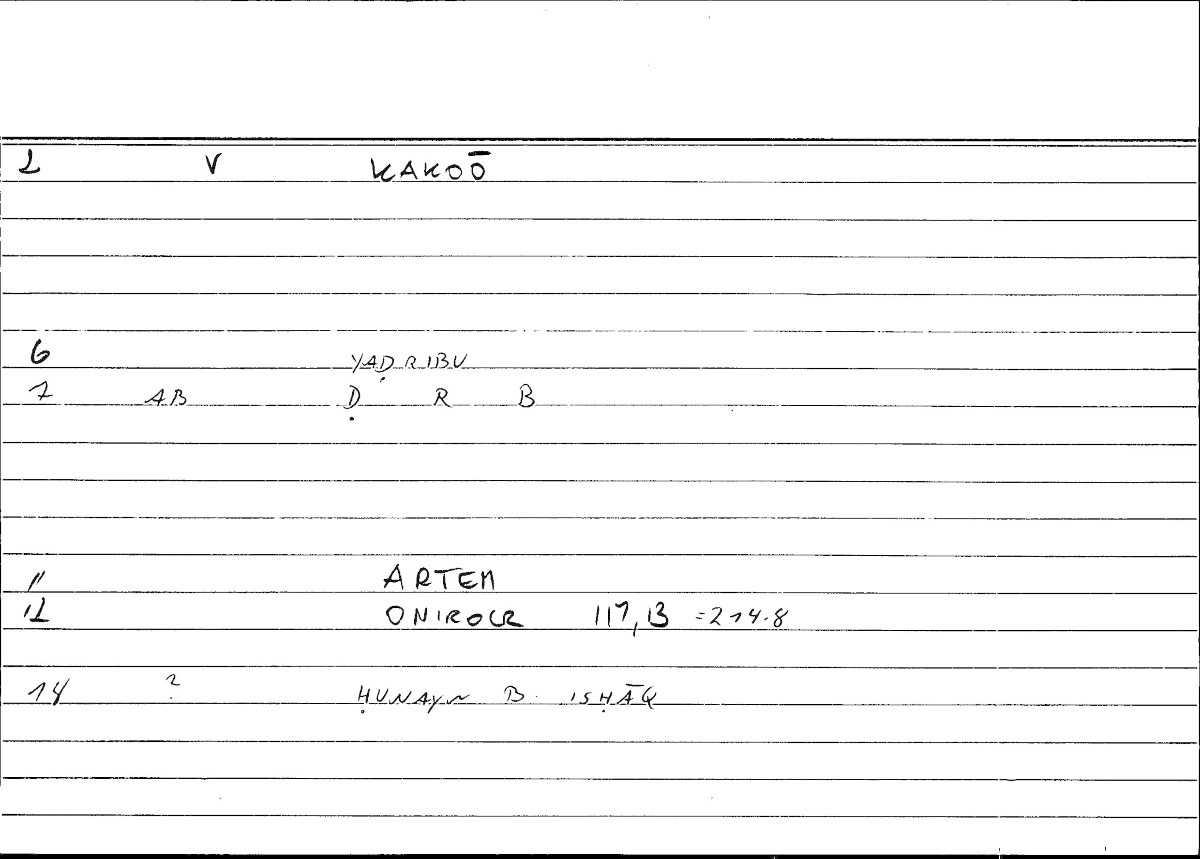 2 V KAKOŌ
6 YAḌRIBU
7 AB Ḍ R B
11 ARTEM
12 ONIROCR 117,13 =214.8
14 ? ḤUNAYN B. ISḤĀQ